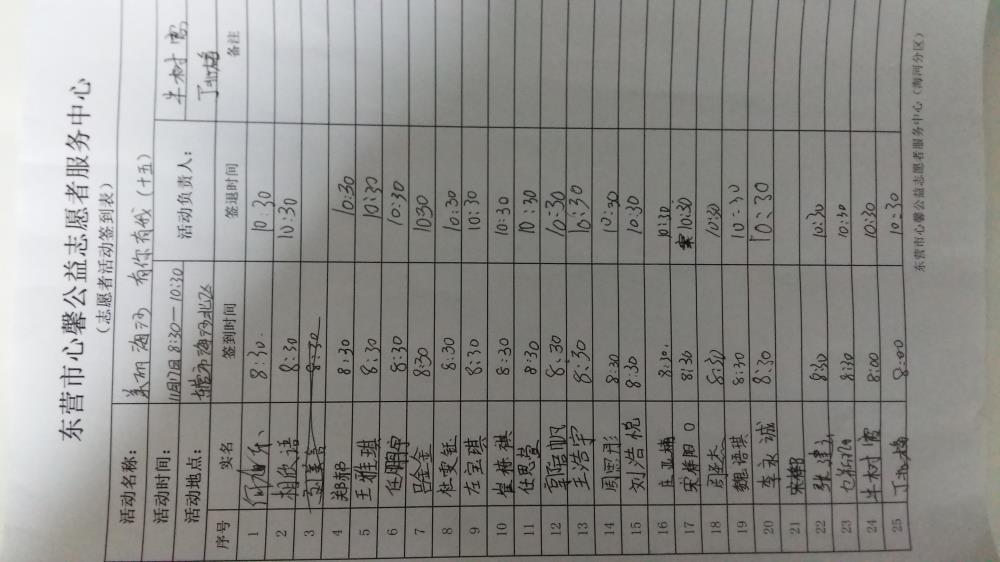 东营市心馨公益志愿者服务中心
（志愿者活动签到表）
活动名称： 美丽海河 有你有我（十五）
活动时间： 11月17日 8:30—10:30 活动负责人： 牛树霞
活动地点：
序号 实名 签到时间 签退时间 备注
1 8:30 10:30
2 相欣语 8:30 10:30
3 8:30
4 郑郝 8:30 10:30
5 王雅琪 8:30 10:30
6 任鹏宇 8:30 10:30
7 吕金金 8:30 10:30
8 杜雯钰 8:30 10:30
9 左宝琪 8:30 10:30
10 崔栋祺 8:30 10:30
11 任思萱 8:30 10:30
12 郭信帆 8:30 10:30
13 王浩宇 8:30 10:30
14 周思彤 8:30 10:30
15 刘浩悦 8:30 10:30
16 庄亚楠 8:30 10:30
17 8:30 10:30
18 8:30 10:30
19 魏语琪 8:30 10:30
20 李永诚 8:30 10:30
21
22 8:30 10:30
23 8:30 10:30
24 牛树霞 8:00 10:30
25 8:00 10:30
东营市心馨公益志愿者服务中心（海河分区）